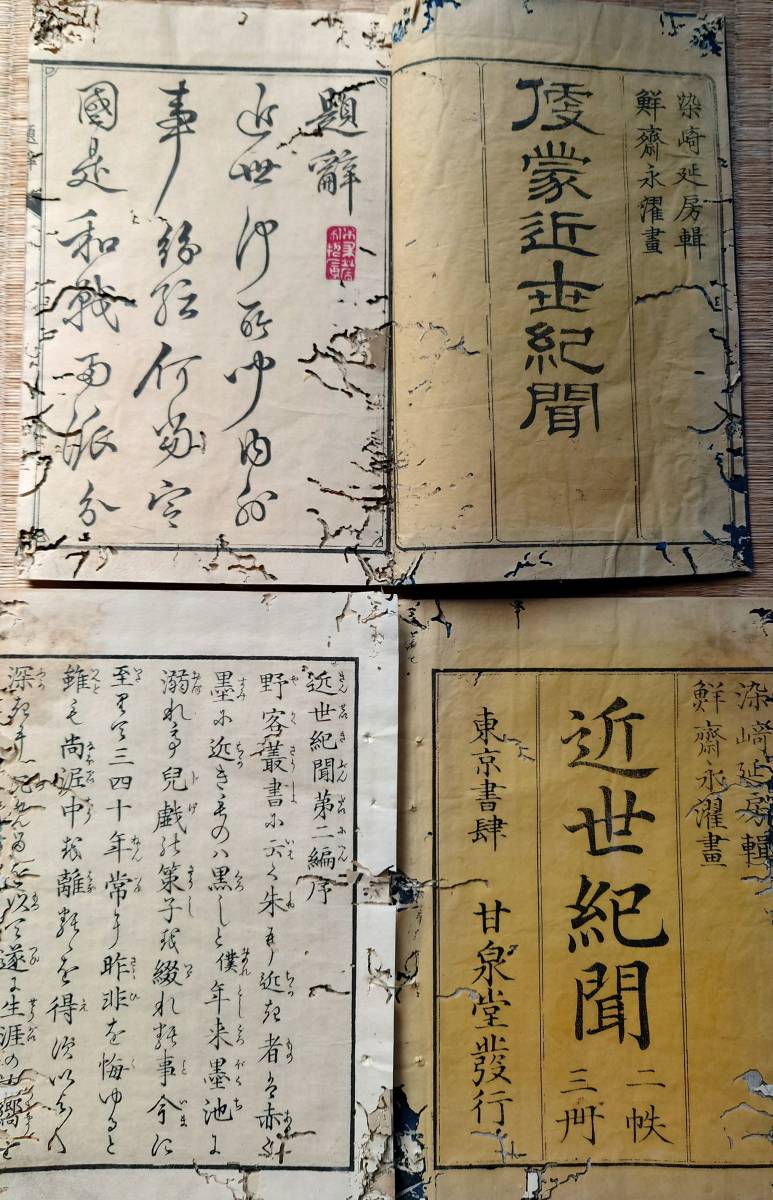 染崎延房輯
鮮齋永濯畫
蒙近世紀聞
題辭
近世
事紛紜何
國是和戰両派分
染崎延房輯
鮮齋永濯畫
近世紀聞
二帙
三冊
東京書肆 甘泉堂發行
近世紀聞第二編序
野客叢書に云く朱に近き者は赤く
墨に近きものハ黒しと僕年来墨池に
溺れて兒戯の策子を綴れる事今に
至りて三四十年常に昨非を悔ゆると
雖も尚泥中を離るゝを得ず以
深き 遂に生涯の